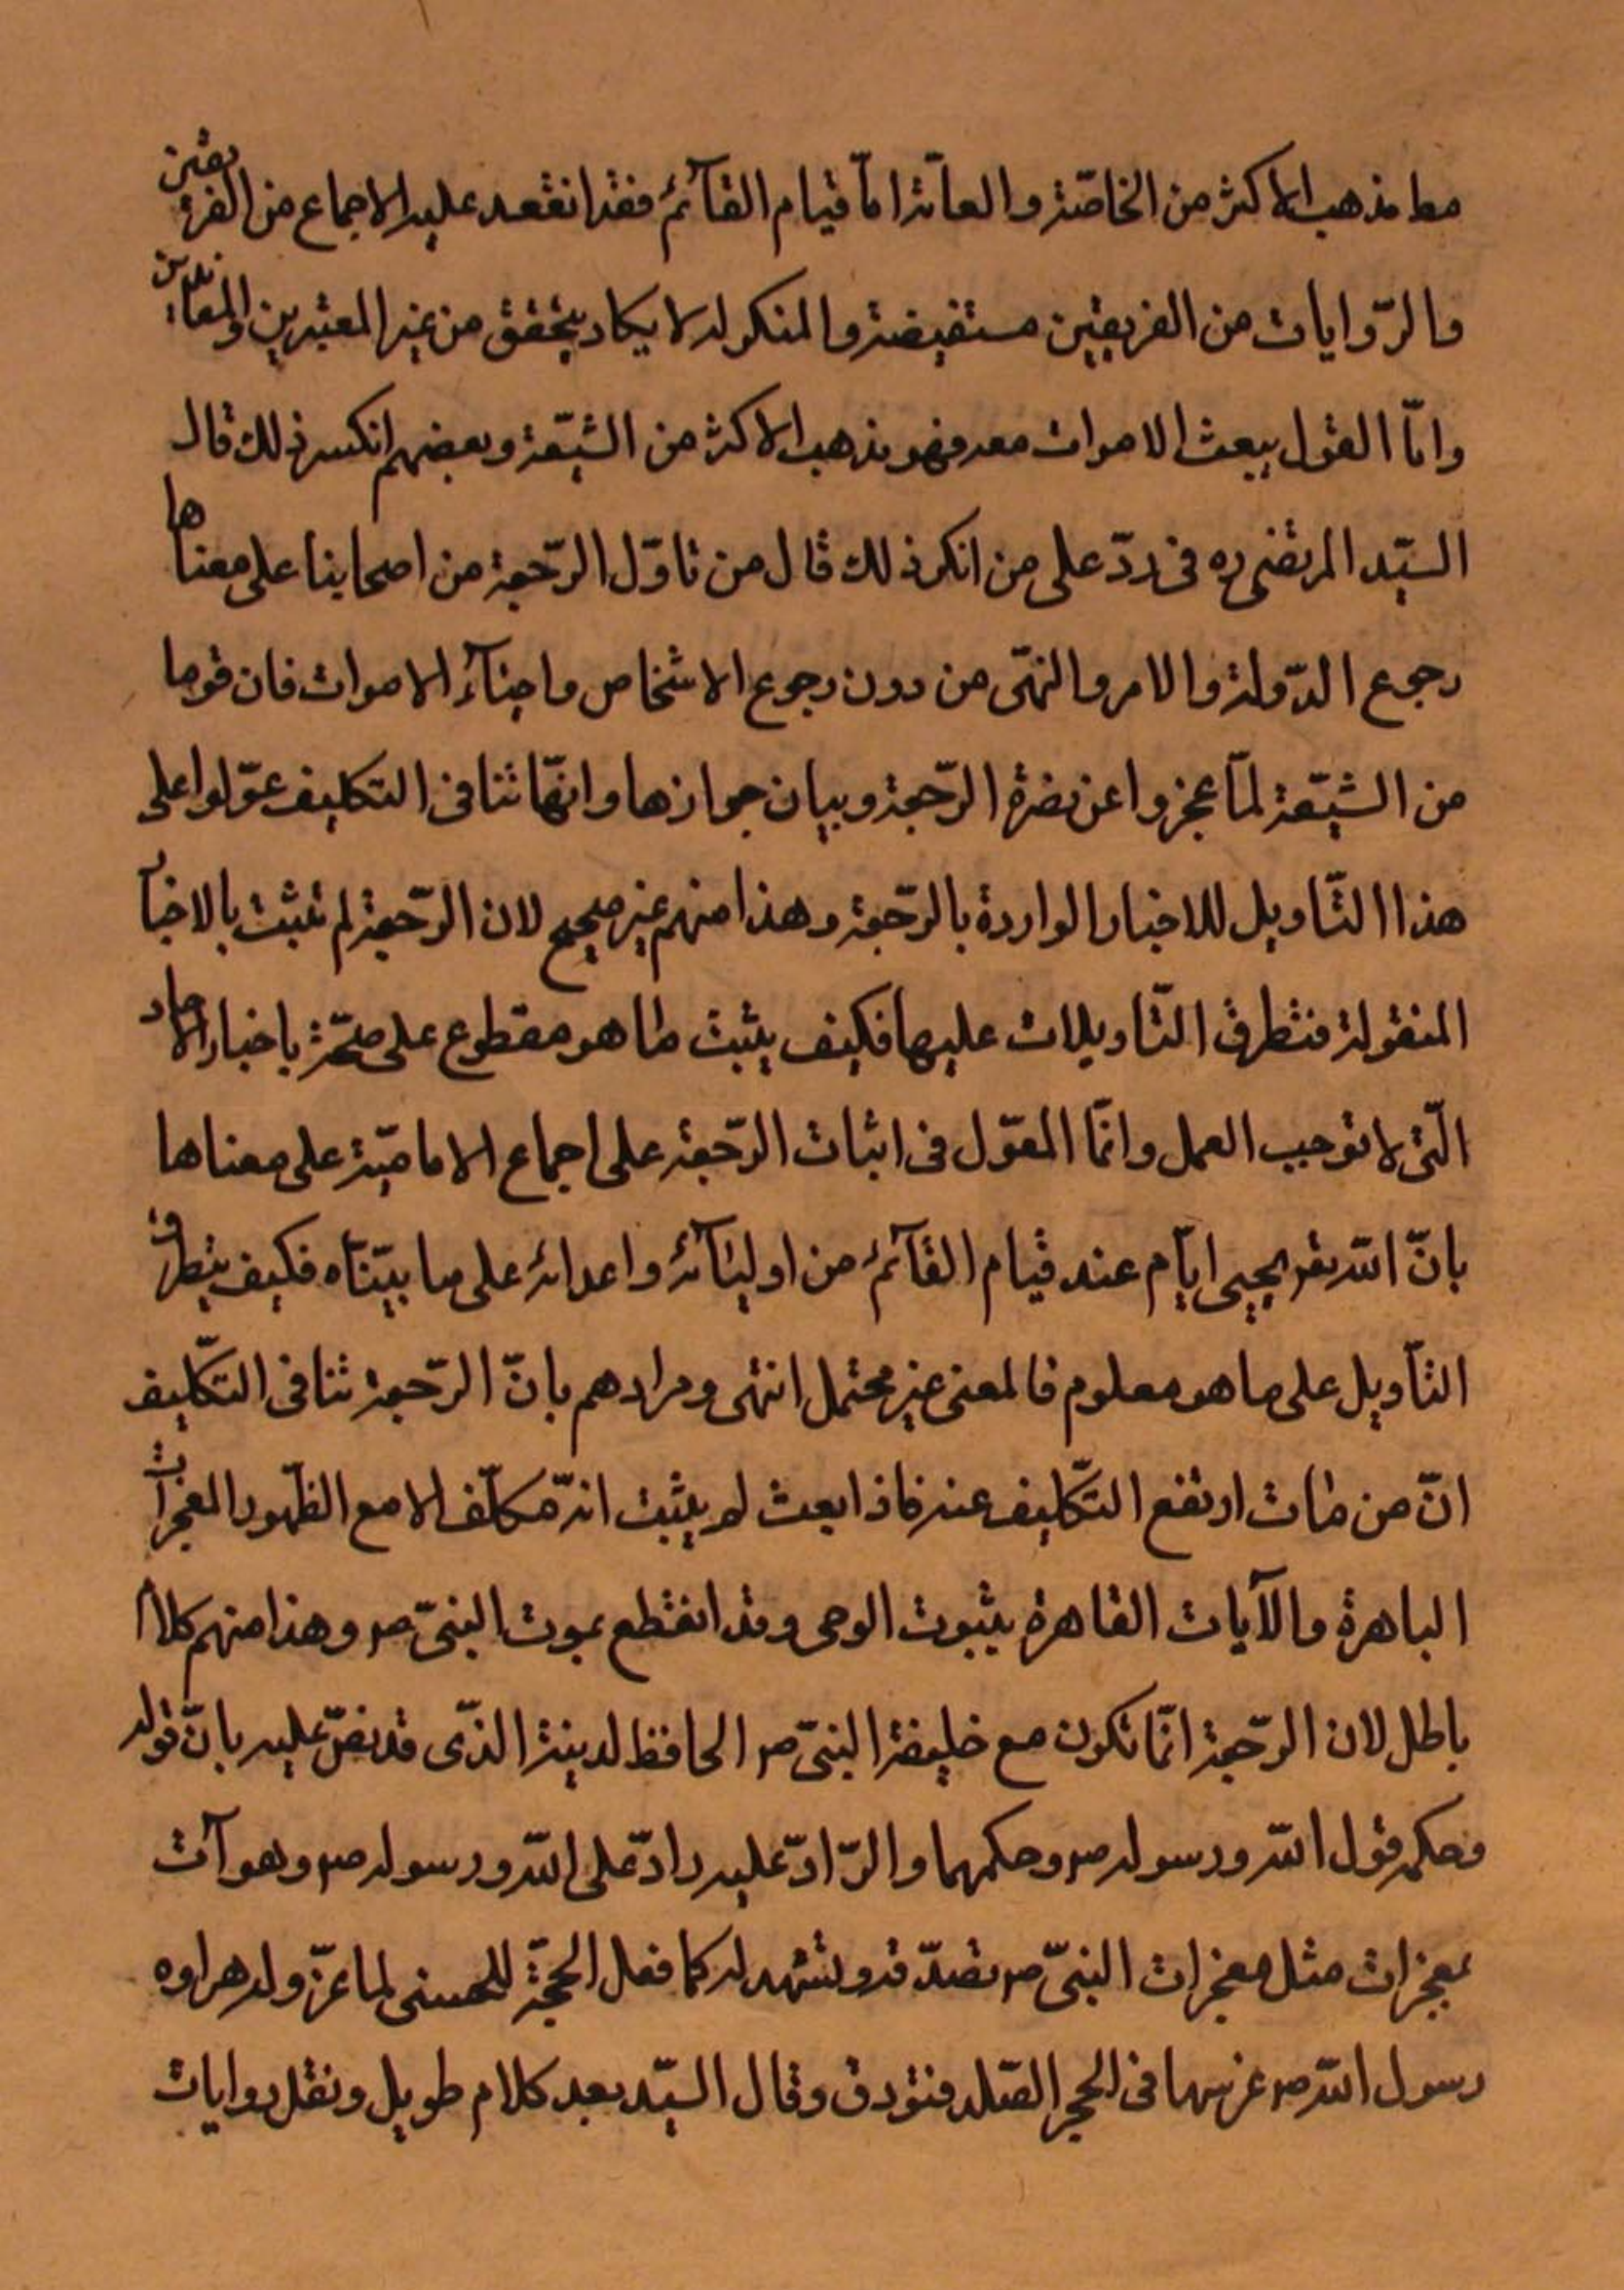 معا مذهب الاكثر من الخاصّة والعامّة امّا قيام القآئمؑ فقد انفقعد عليه الاجماع من الفريقين
والرّوايات من الفريقين مستفيضة والمنكر له لا يكاد يتحقق من غير المعتبرين والمعاندين
وامّا القول ببعث الاموات معه فهو مذهب الاكثر من الشيّعة وبعضهم انكر ذلك قال
السيّد المرتضى ره فى ردّ على من انكر ذلك قال من تاوّل الرّجعة من اصحابنا على معناها
رجوع الدّولة والامر والنهّى من دون رجوع الاشخاص واحيآء الاموات فان قوما
من الشيّعة لمّا عجزوا عن نصرة الرّجعة وبيان جوازها وانهّا تنافى التكليف عوّلوا على
هذا التّاويل للاخبار الواردة بالرّجعة وهذا منهم غير صحيح لان الرّجعة لم تثبت بالاخبار
المنقولة فتطرق التّاويلات عليها فكيف يثبت ما هو مقطوع على صحّته باخبار الاحاد
التّى لا توجب العمل وانمّا المعوّل فى اثبات الرّجعة على اجماع الاماميّة على معناها
بانّ اللّه تعر يحيى ايّام عند قيام القآئمؑ من اوليآئهؑ واعدائه على ما بيّنّاه فكيف يتطرق
التأويل على ما هو معلوم فالمعنى غير محتمل انتهى ومرادهم بانّ الرّجعة تنافى التكّليف
انّ من مات ارتفع التكّليف عنه فاذا بعث لم يثبت انّه مكلّف الا مع الظّهور المعجزات
الباهرة والآيات القاهرة بثبوت الوحى وقد انقطع بموت النبىّ ص وهذا منهم كلام
باطل لان الرّجعة انمّا تكون مع خليفة النبىّ ص الحافظ لدينه الذّى قد نصّ عليه بانّ قوله
وحكمه قول اللّه ورسوله ص وحكمهما والرّادّ عليه رادّ على اللّه ورسوله ص وهو آت
بمعجزات مثل معجزات النبىّ ص تصدّقه وتشهد له كما فعل الحجّة للحسنى لما غرّ وله هراوه
رسول اللّه ص غرسها فى الحجر الصّلد فتورق وقال السيّد بعد كلام طويل ونقل روايات